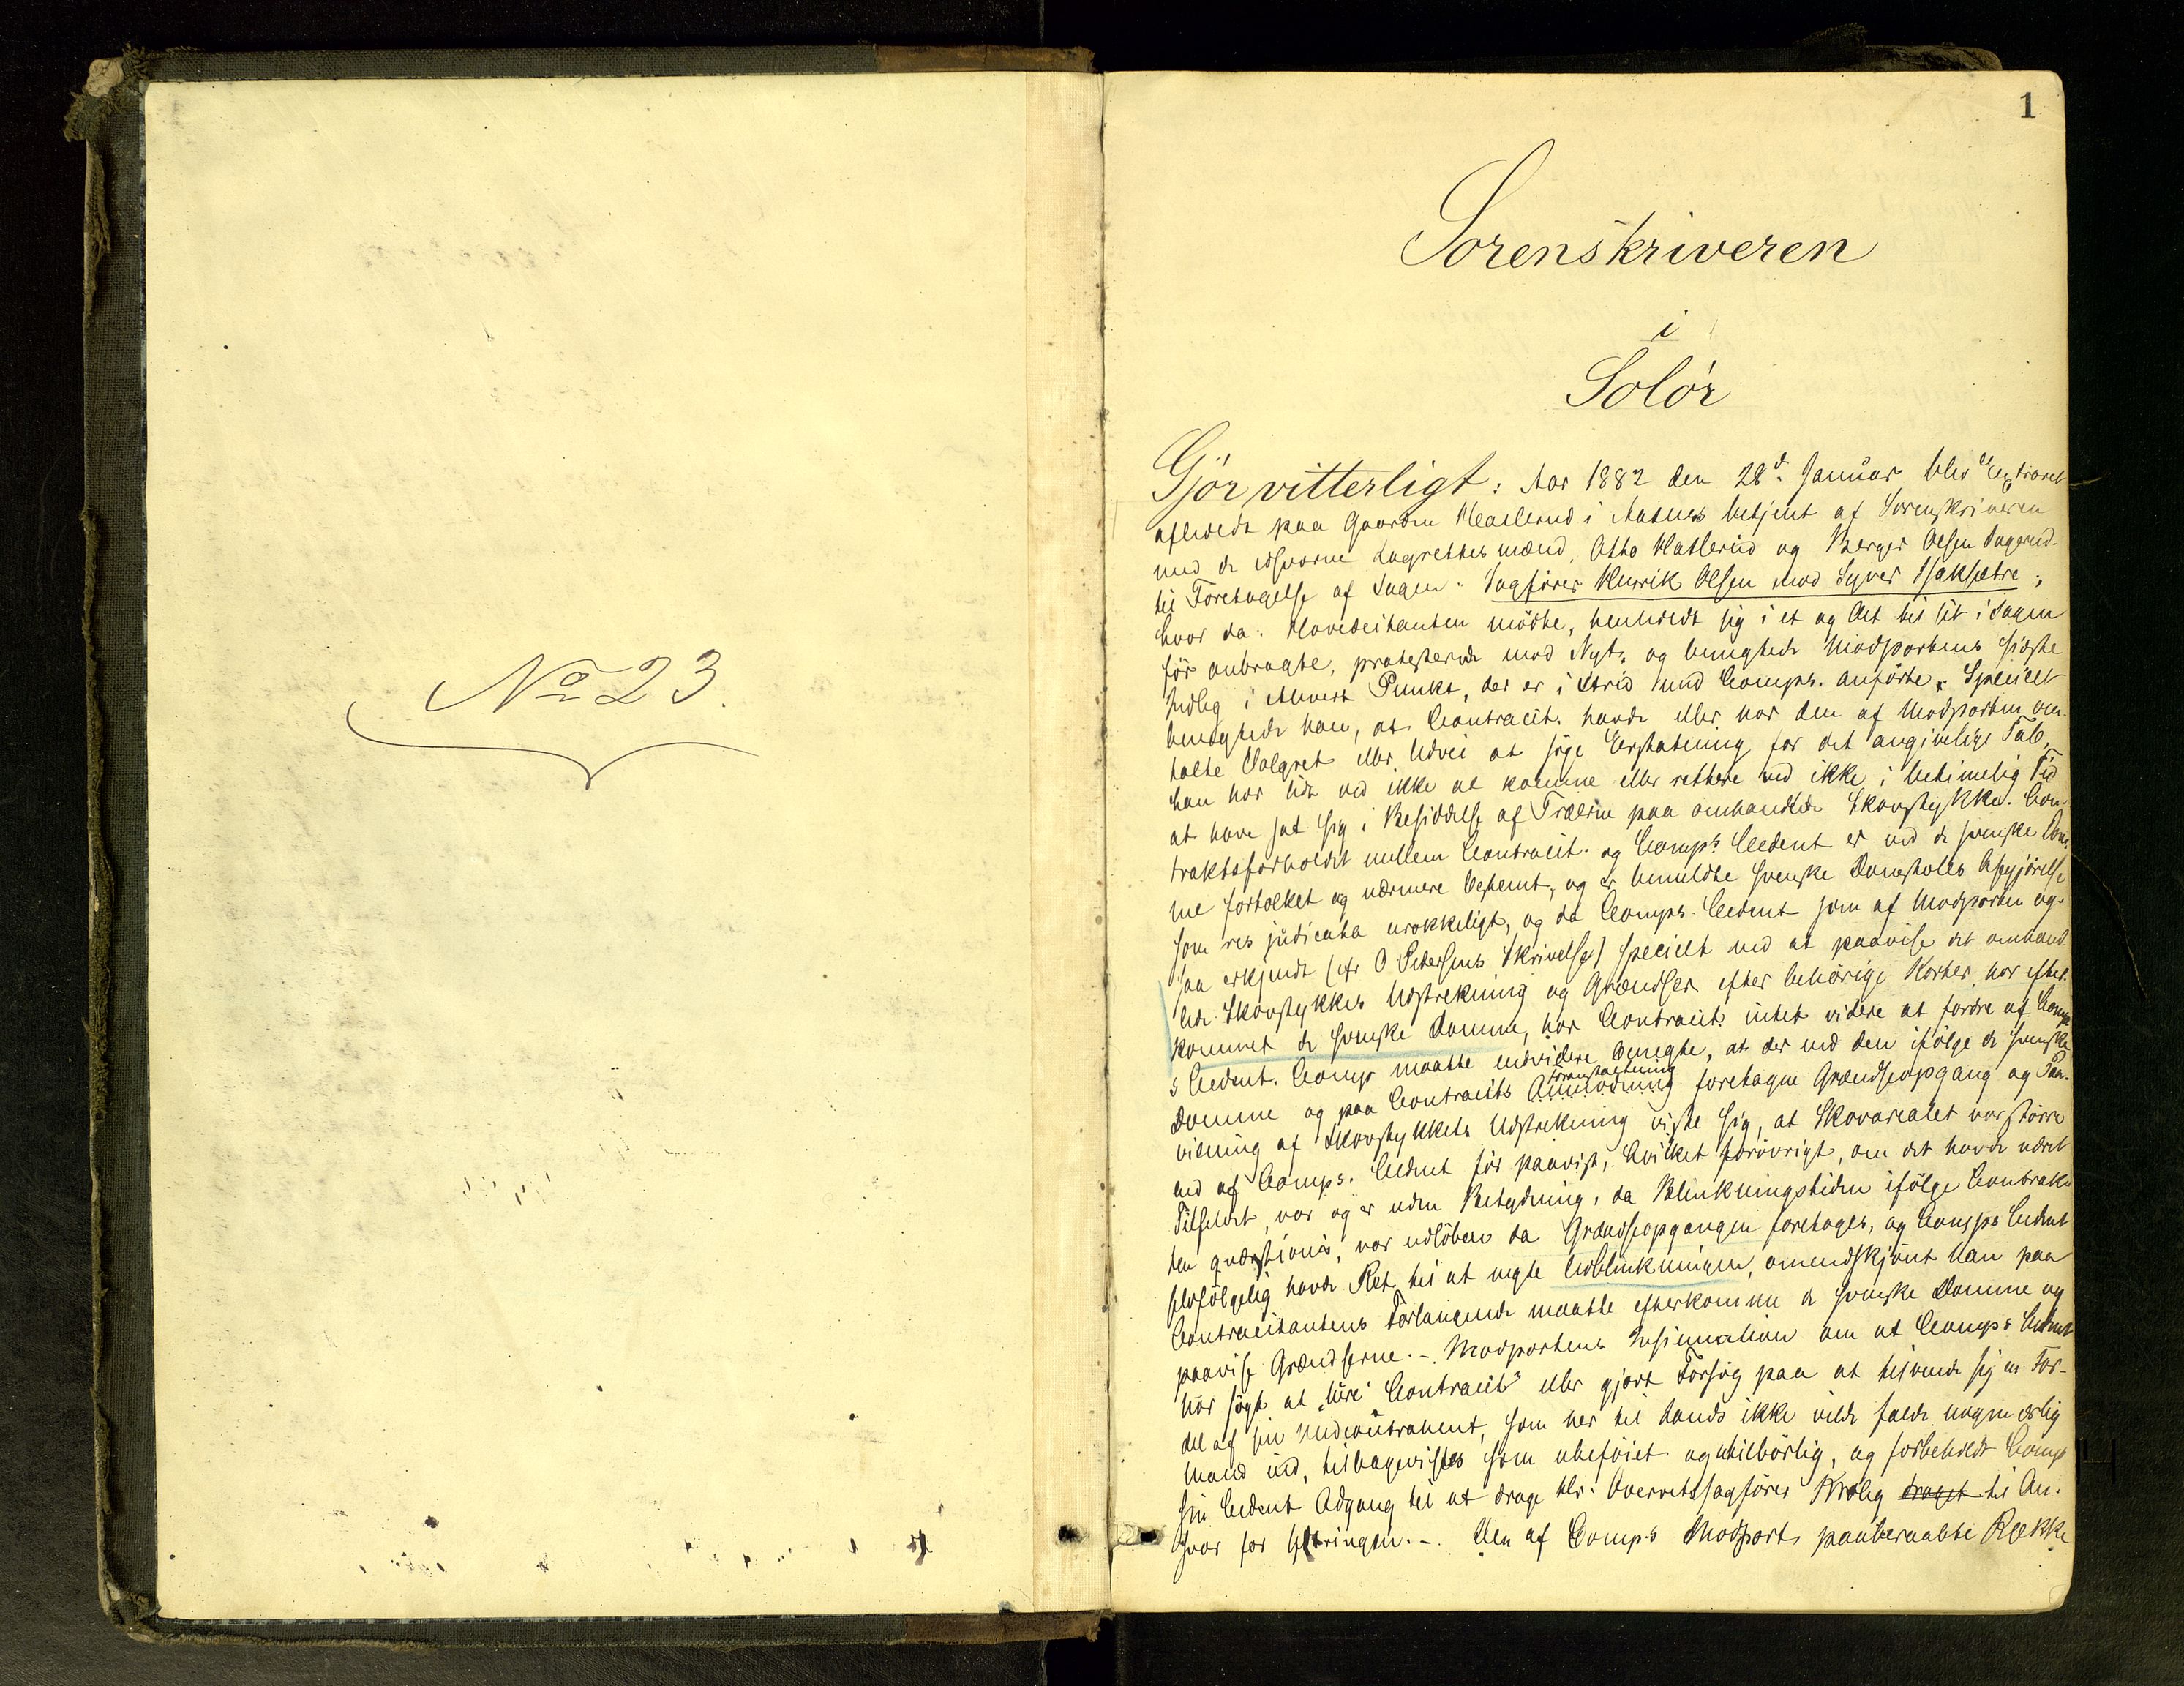 No 23.
1
Sorenskriveren
i
Solör
Gjör vitterligt: Aar 1882 den 28d. Januar blev Extraret
afholdt paa Gaarden Haslerud i Aasnes betjent af Sorenskriveren
med de edsvorne Lagrettesmænd, Otto Haslerud og Berger Olsen
til Foretagelse af Sagen: Sagförer Henrik Olsen mod Syver Isaksætre;
hvor da: Hovedcitanten mödte, henholdt sig i et og Alt til sit i Sagen
för anbragte, protesterede mod Nyt, og benegtede Modpartens sidste
Indlæg i ethvert Punkt, der er i Strid med Comps. anförte. Specielt
benegtede han, at Contracit. havde eller har den af Modparten om-
talte Valgret eller Udvei at söge Erstatning for det angivelige Tab,
han har lidt ved ikke at komme eller rettere ved ikke i betimelig Tid
at have sat sig i Besiddelse af Træerne paa omhandlede Skovstykke. Con-
traktsforholdet mellem Contracit. og Comps Cedent er ved de svenske Dom-
me fortolket og nærmere bestemt, og er bemeldte svenske Domstoles Afgjörelse
som res judicata urokkeligt, og da Comps. Cedent som af Modparten og-
saa erkjendt (cfr O Pedersens Skrivelse) specielt ved at paavise det omhand-
lede Skovstykkes Udstrekning og Grændser efter behörige Karter, har efter-
kommet de svenske Domme, har Contracit. intet videre at fordre af Comp-
s Cedent. Comp maatte endvidere benegte, at der ved den ifölge de svenske
Domme og paa Contracits Anmodning foretagne Grændseopgang og Paa-
Foranstaltning
visning af Skovstykkets Udstrekning viste sig, at Skovarealet var större
end af Comps. Cedent för paavist, hvilket forövrigt, om det havde været
Tilfeldet, var og er uden Betydning, da Blinkningstiden ifölge Contrak-
ten quæstionis, var udlöben da Grændseopgangen foretoges, og Comps Cedent
selvfölgelig havde Ret til at negte Udblinkningen, omendskjönt han paa
Contracitantens Forlangende maatte efterkomme de svenske Domme og
paavise Grændserne. -. Modpartens Insinuation om at Comps Cedent
har sögt at "lure" Contracit. eller gjort Forsög paa at tilvende sig en For-
del af sin Medcontrahent, som her til Lands ikke vilde falde nogen ærlig
Mand ind, tilbagevistes som ubeföiet og utilbörlig, og forbeholdt Comp
sin Cedent Adgang til at drage Hr. Overretssagförer Krolig draget til An-
svar for Ytringen. -. Den af Comps Modpart paaberaabte Rekke